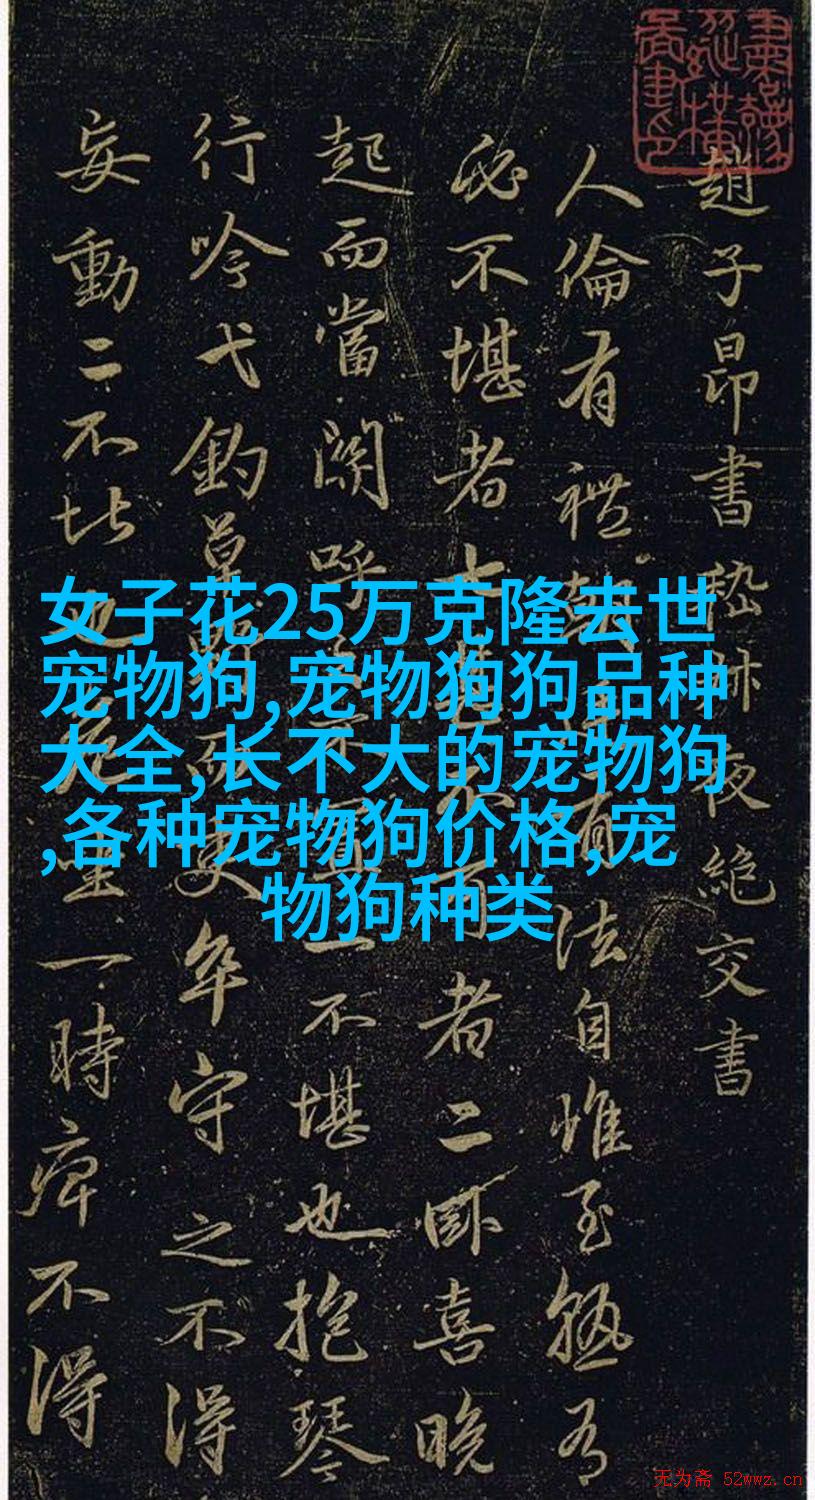 趙子昂書嵇叔夜絶交書
人倫有禮朝廷有法自惟至熟有
必不堪者七甚不可者二卧喜晚
起而當關呼之不置一不堪也抱琴
行吟弋釣草野而吏卒守之不得
妄動二不堪也危坐一時痺不得
女子花25万克隆去世
宠物狗,宠物狗狗品种
大全,长不大的宠物狗
,各种宠物狗价格,宠
物狗种类
无为斋 52wwz.cn